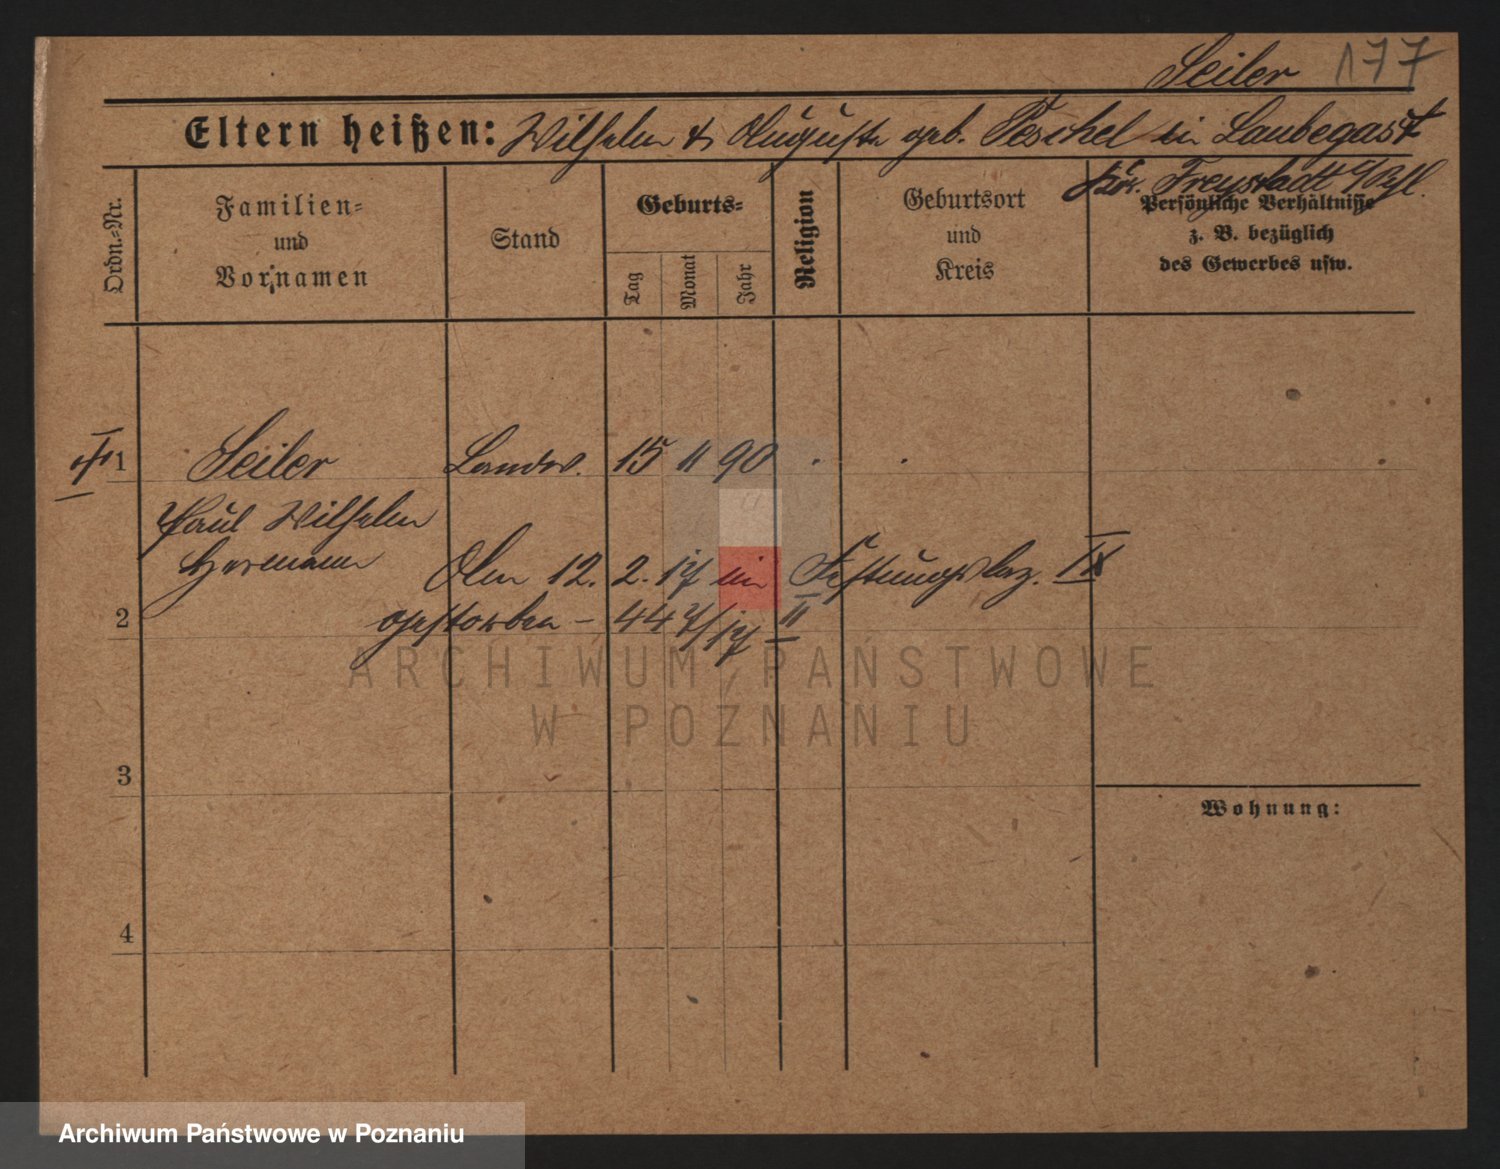 Seiler 177
Eltern heißen: Wilhelm & Auguste geb. Peschel in Laubegast
Krs. Freystadt
Ordn.-Nr.
Familien-
und
Vornamen
Stand
Geburts-
Tag
Monat
Jahr
Religion
Geburtsort
und
Kreis
Persönliche Verhältnisse
z. B. bezüglich
des Gewerbes usw.
1 Seiler Landw. 15 11 90
Paul Wilhelm
Hermann Am 12. 2. 17 in Festungslaz. IX
2 gestorben – 447/17 II
3
4
Wohnung:
ARCHIWUM PAŃSTWOWE
W POZNANIU
Archiwum Państwowe w Poznaniu